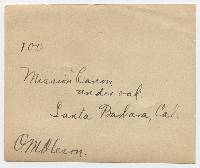 100
Mission Canon
under oak
Santa Barbara, Cal.
O.M.Oleson.